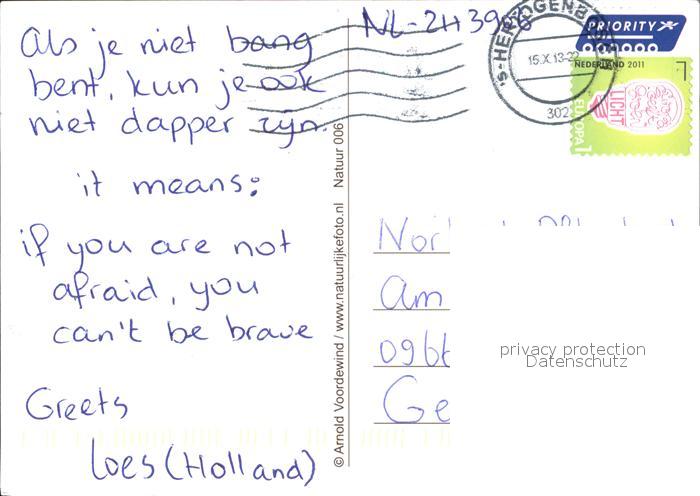 Als je niet bang
bent, kun je ook
niet dapper zijn.
it means:
if you are not
afraid, you
can't be brave
Greets
Loes (Holland)
© Arnold Voordewind / www.natuurlijkefoto.nl Natuur 006
's-HERTOGENB
15.X.13-22
302
PRIORITY
NEDERLAND 2011
EUROPA 1
LICHT
Nor
Am
Ge
privacy protection
Datenschutz